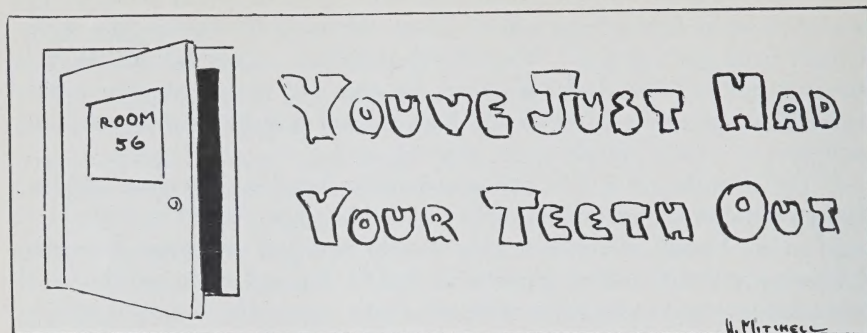 ROOM
56
YOUVE JUST HAD
YOUR TEETH OUT
W. MITCHELL